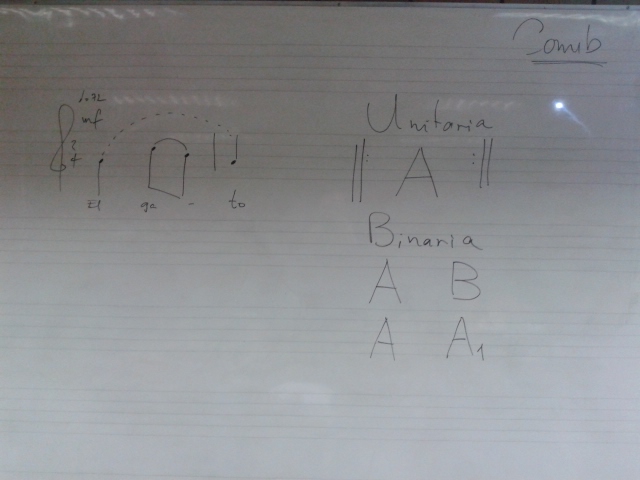 Comib
mf
2
4
El ga - to
Unitaria
A
Binaria
A B
A A1